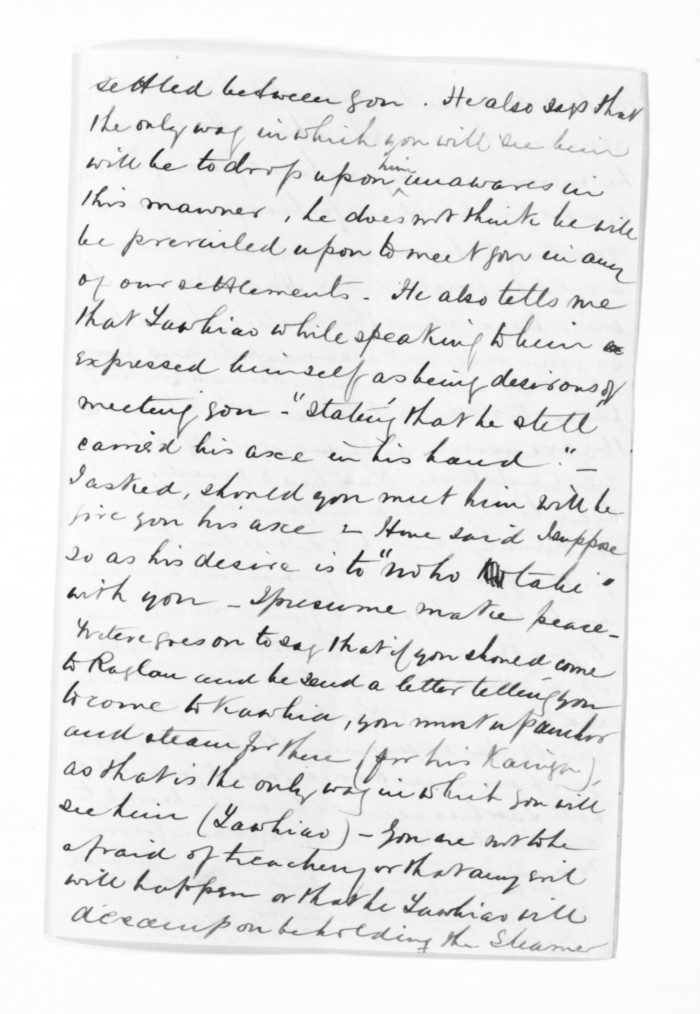 settled between you. He also says that
the only way in which you will see him
will be to drop upon him unawares in
this manner, he does not think he will
be prevailed upon to meet you in any
of our settlements. He also tells me
that Tawhiao while speaking to him
expressed himself as being desirous of
meeting you - "stating that he still
carried his axe in his hand." -
I asked, should you meet him will he
give you his axe & Hone said I suppose
so as his desire is to "noho tahi"
with you - I presume make peace -
goes on to say that if you should come
to Raglan and he send a letter telling you
to come to Kawhia, you must up anchor
and steam for there (for his Kainga),
as that is the only way in which you will
see him (Tawhiao) - You are not to be
afraid of treachery or that any evil
will happen or that he Tawhiao will
decamp on beholding the Steamer